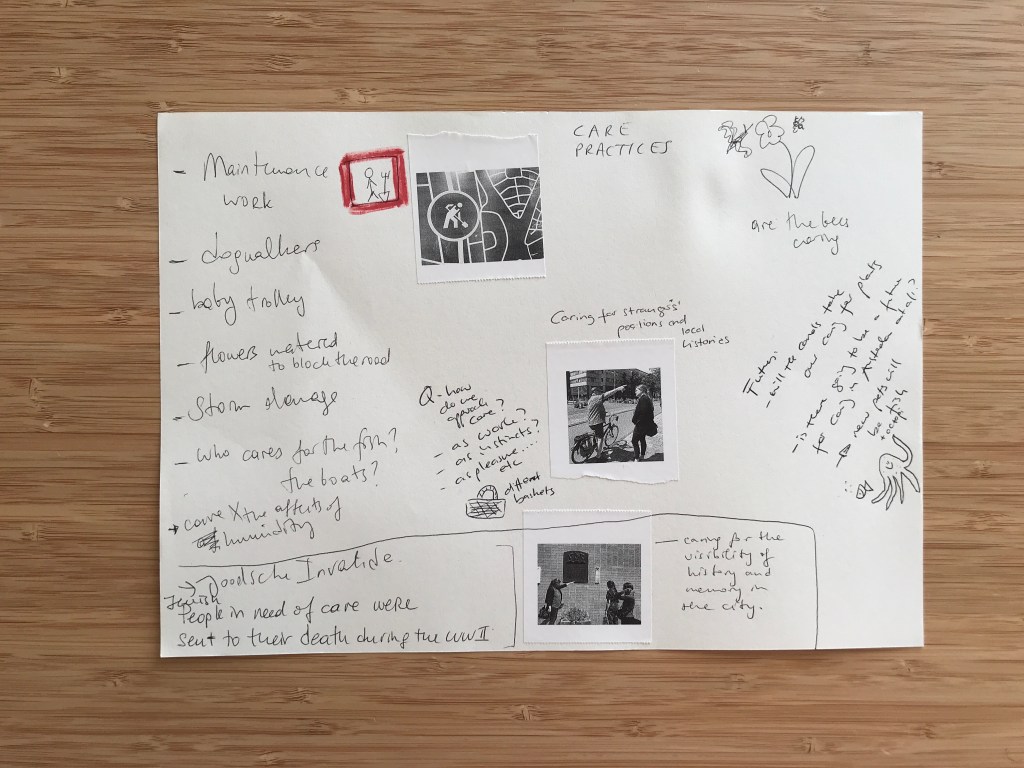 CARE
PRACTICES
- Maintenance
work
- dogwalkers
- baby trolley
- flowers watered
to block the road
- Storm damage
- who cares for the fish?
the boats?
care X the affects of
humidity
are the bees
caring
Caring for strangers'
positions and
local
histories
Q - how
do we
approach
care?
- as work?
- as instincts?
- as pleasure....
etc
different
baskets
Future:
- will the canals take
over caring for plants
- is there going to be a future
for caring in Australia at all?
new pets will
be
octofish
Joodsche Invalide.
Jewish
People in need of care were
sent to their death during the WW II
- caring for the
visibility of
history and
memory in
the city.